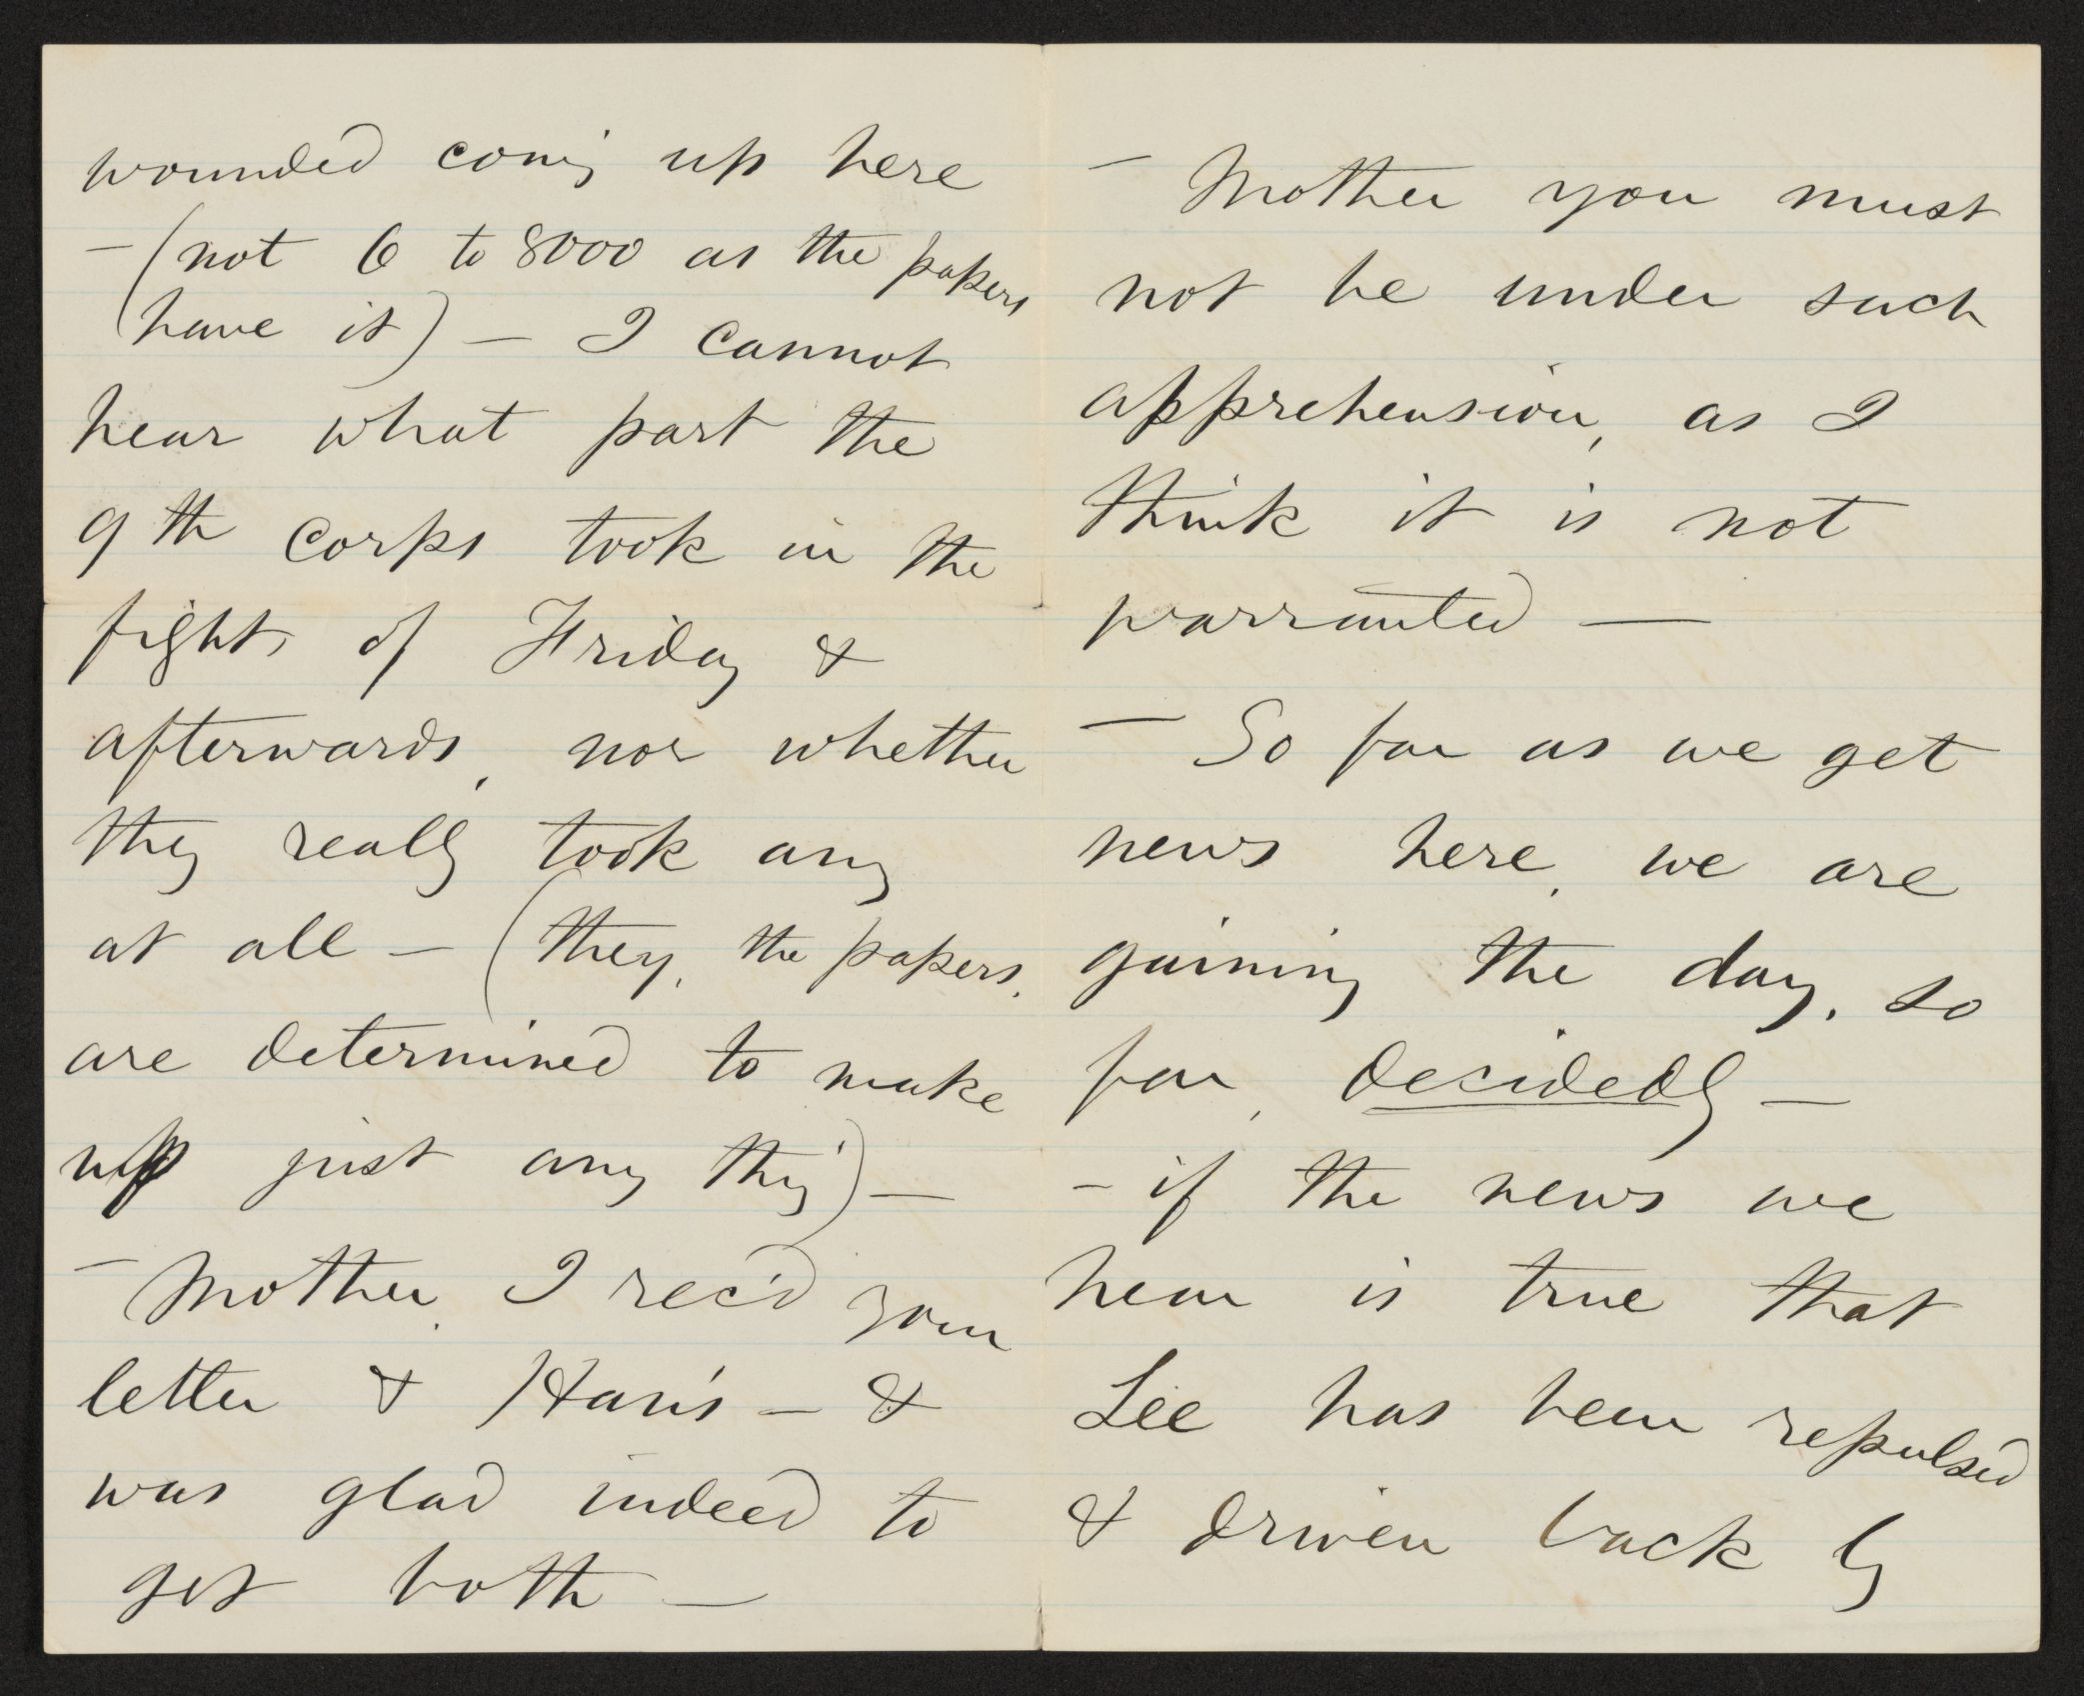 wounded coming up here
– (not 6 to 8000 as the papers
have it) – I cannot
hear what part the
9th corps took in the
fights of Friday &
afterwards, nor whether
they really took any
at all – (they, the papers,
are determined to make
up just any thing) –
– Mother, I rec'd your
letter & Han's – &
was glad indeed to
get both –
– Mother you must
not be under such
apprehension, as I
think it is not
warranted –
– So far as we get
news here, we are
gaining the day, so
far, decidedly –
– if the news we
hear is true that
Lee has been repulsed
& driven back by